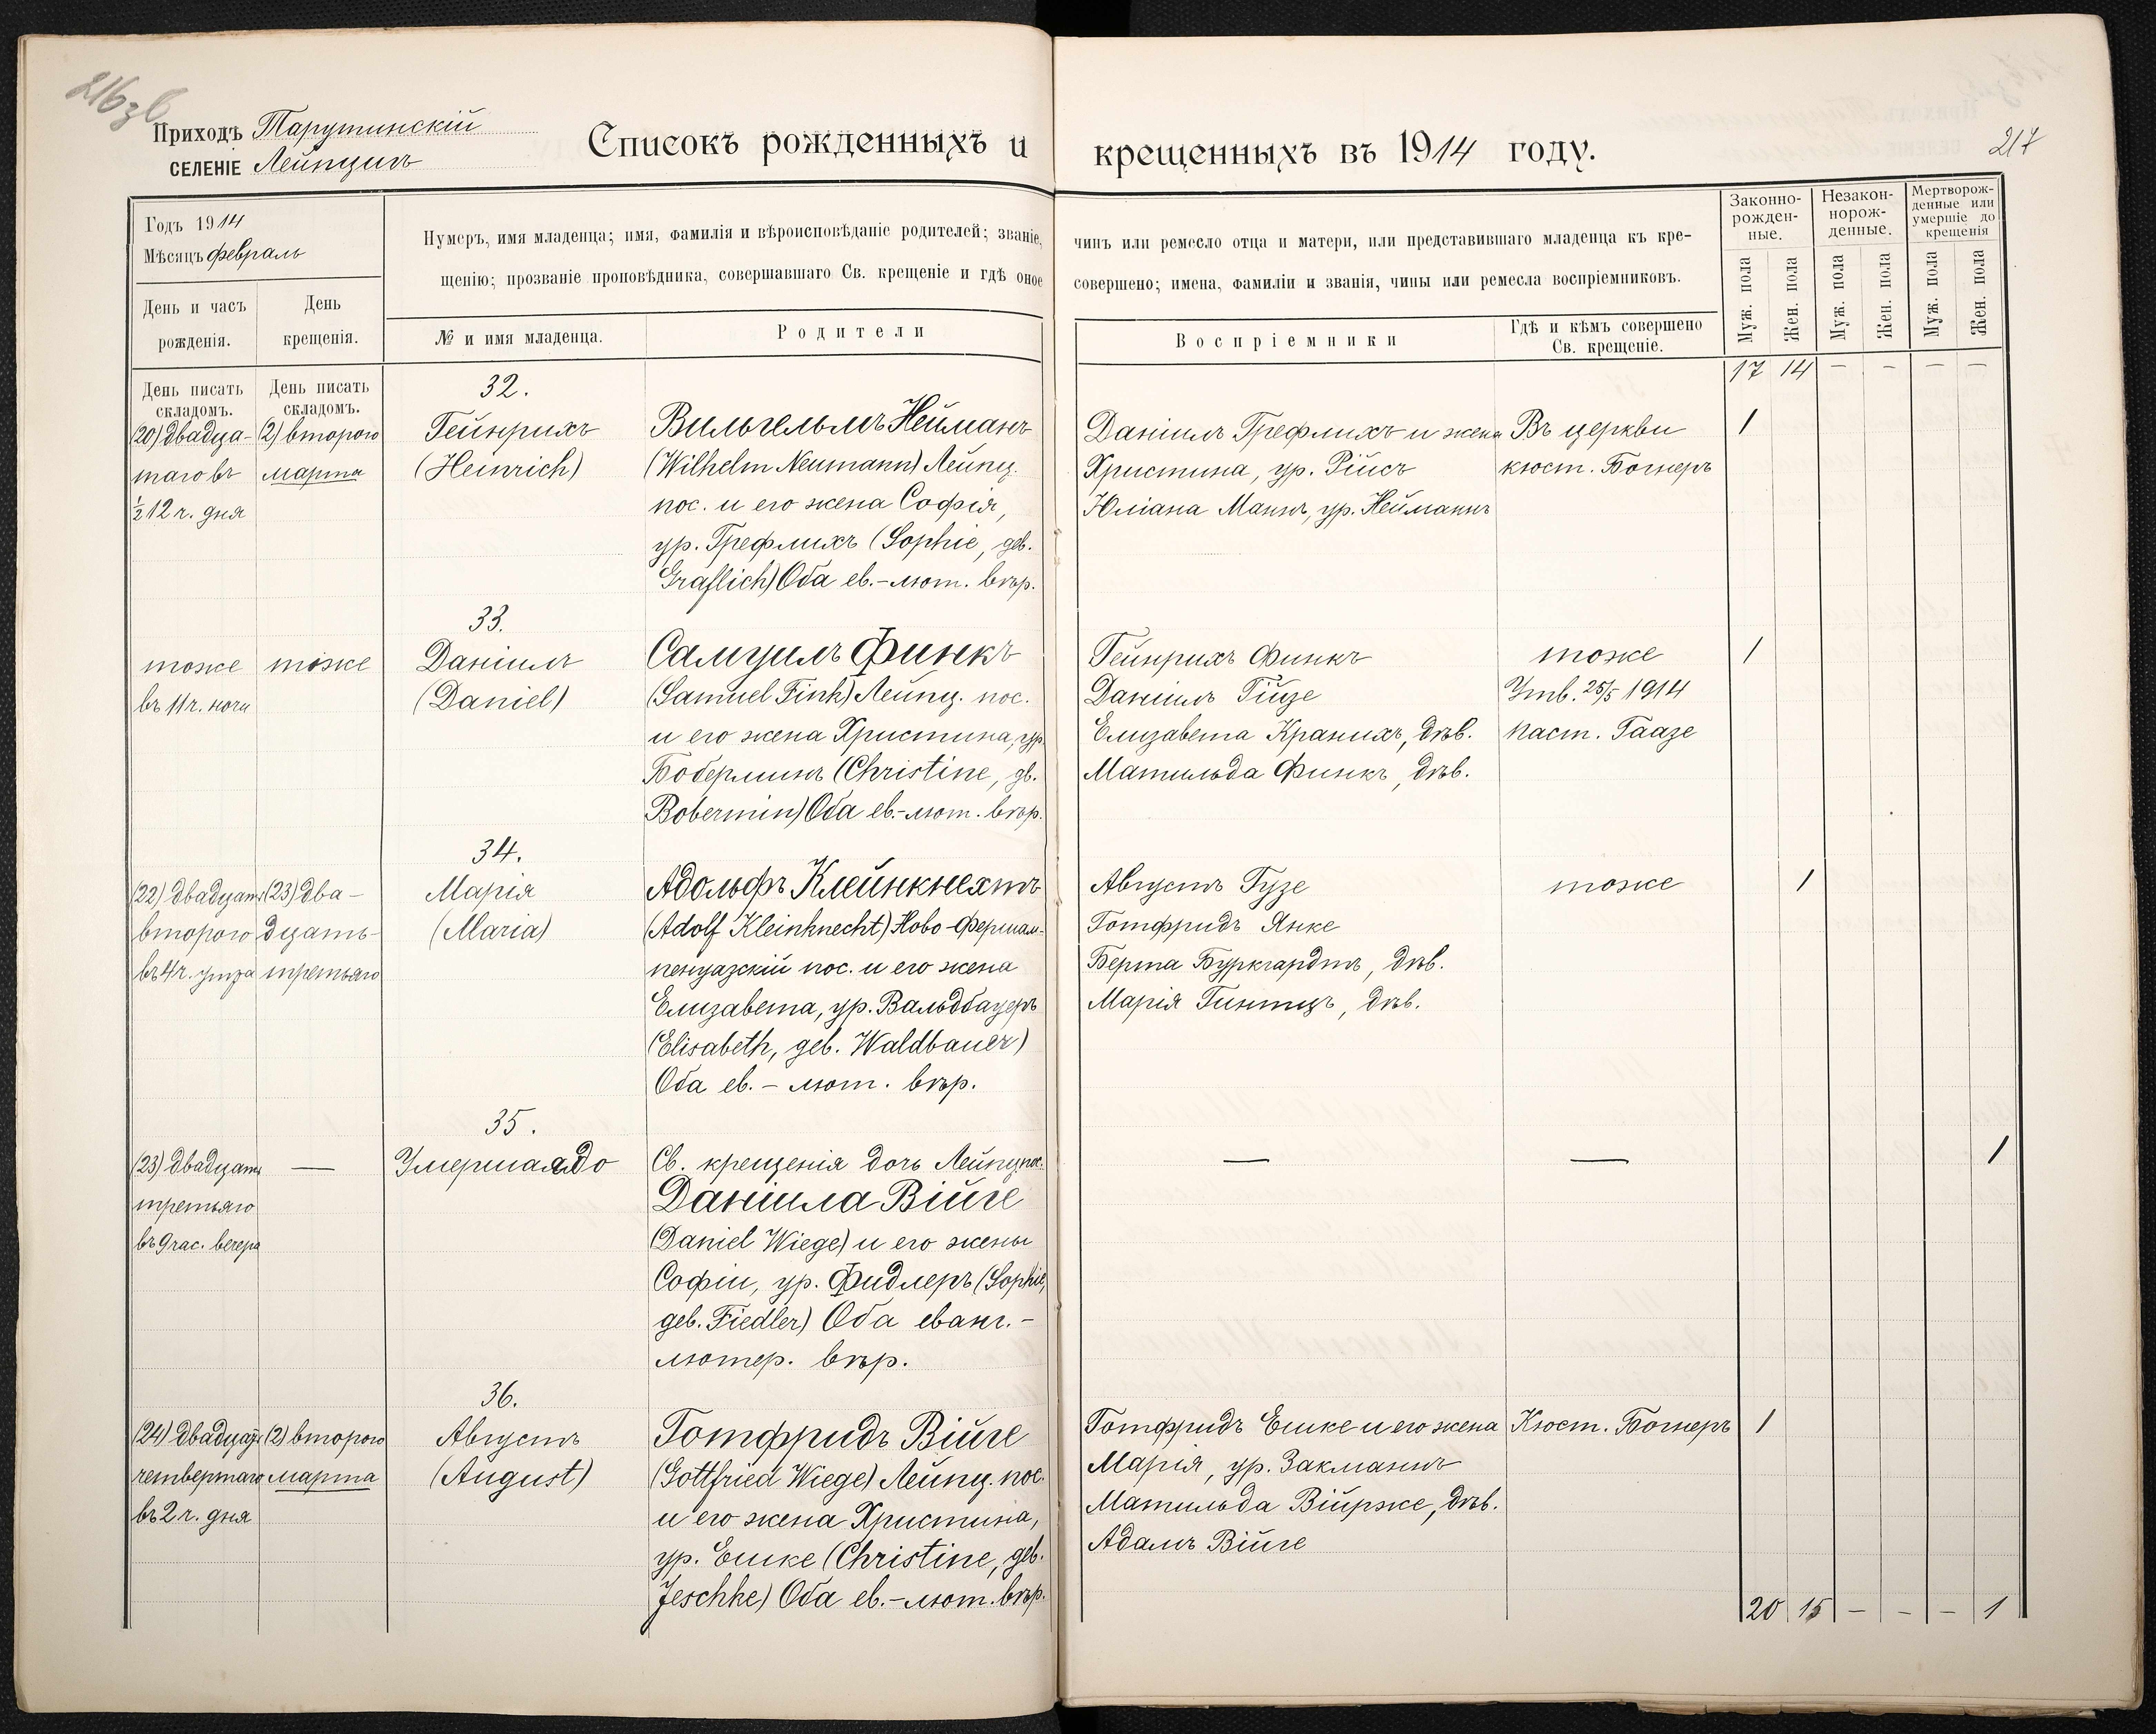 216 зв
217
Приходъ Тарутинскій
СЕЛЕНІЕ Лейпцигъ
Списокъ рожденныхъ и крещенныхъ въ 1914 году.
Годъ 1914
Мѣсяцъ февраль
День и часъ рожденія.
День крещенія.
Нумеръ, имя младенца; имя, фамилія и вѣроисповѣданіе родителей; званіе, чинъ или ремесло отца и матери, или представившаго младенца къ кре-
щенію; прозваніе проповѣдника, совершавшаго Св. крещеніе и гдѣ оное совершено; имена, фамиліи и званія, чины или ремесла воспріемниковъ.
№ и имя младенца.
Родители
Воспріемники
Гдѣ и кѣмъ совершено
Св. крещеніе.
Законно-
рожден-
ные.
Незакон-
норож-
денные.
Мертворож-
денные или
умершіе до
крещенія
Муж. пола
Жен. пола
Муж. пола
Жен. пола
Муж. пола
Жен. пола
17 14 — — — —
День писать
складомъ.
День писать
складомъ.
32.
(20) двадца-
таго въ
½12 ч. дня
(2) второго
марта
Гейнрихъ
(Heinrich)
Вильгельмъ Нейманъ
(Wilhelm Neumann) Лейпц.
пос. и его жена Софія,
ур. Грефлихъ (Sophie, geb.
Gräflich) Оба ев.-лют. вѣр.
Даніилъ Грефлихъ и жена
Христина, ур. Рійсъ
Юліана Маннъ, ур. Нейманнъ
Въ церкви
кюст. Богнеръ
1
33.
тоже
въ 11 ч. ночи
тоже
Даніилъ
(Daniel)
Самуилъ Финкъ
(Samuel Fink) Лейпц. пос.
и его жена Христина, ур.
Боберминъ (Christine, gb.
Bobermin) Оба ев.-лют. вѣр.
Гейнрихъ Финкъ
Даніилъ Гійзе
Елизавета Кранихъ, дѣв.
Матильда Финкъ, дѣв.
тоже
Утв. 25/5 1914
паст. Гаазе
1
34.
(22) двадцать
второго
въ 4 ч. утра
(23) два-
дцать
третьяго
Марія
(Maria)
Адольфъ Клейнкнехтъ
(Adolf Kleinknecht) Ново-Фершам-
пенуазскій пос. и его жена
Елизавета, ур. Вальдбауеръ
(Elisabeth, geb. Waldbauer)
Оба ев. - лют. вѣр.
Августъ Гузе
Готфридъ Янке
Берта Буркгардтъ, дѣв.
Марія Гинтцъ, дѣв.
тоже
1
35.
(23) двадцать
третьяго
въ 9 час. вечера
—
Умершая до
Св. крещенія дочь Лейпц. пос.
Даніила Війге
(Daniel Wiege) и его жены
Софіи, ур. Фидлеръ (Sophie,
geb. Fiedler) Оба еванг.-
лютер. вѣр.
—
—
1
36.
(24) двадцать
четвертаго
въ 2 ч. дня
(2) второго
марта
Августъ
(August)
Готфридъ Війге
(Gottfried Wiege) Лейпц. пос.
и его жена Христина,
ур. Ешке (Christine, geb.
Jeschke) Оба ев.-лют. вѣр.
Готфридъ Ешке и его жена
Марія, ур. Закманнъ
Матильда Війрже, дѣв.
Адамъ Війге
Кюст. Богнеръ
1
20 15 — — — 1